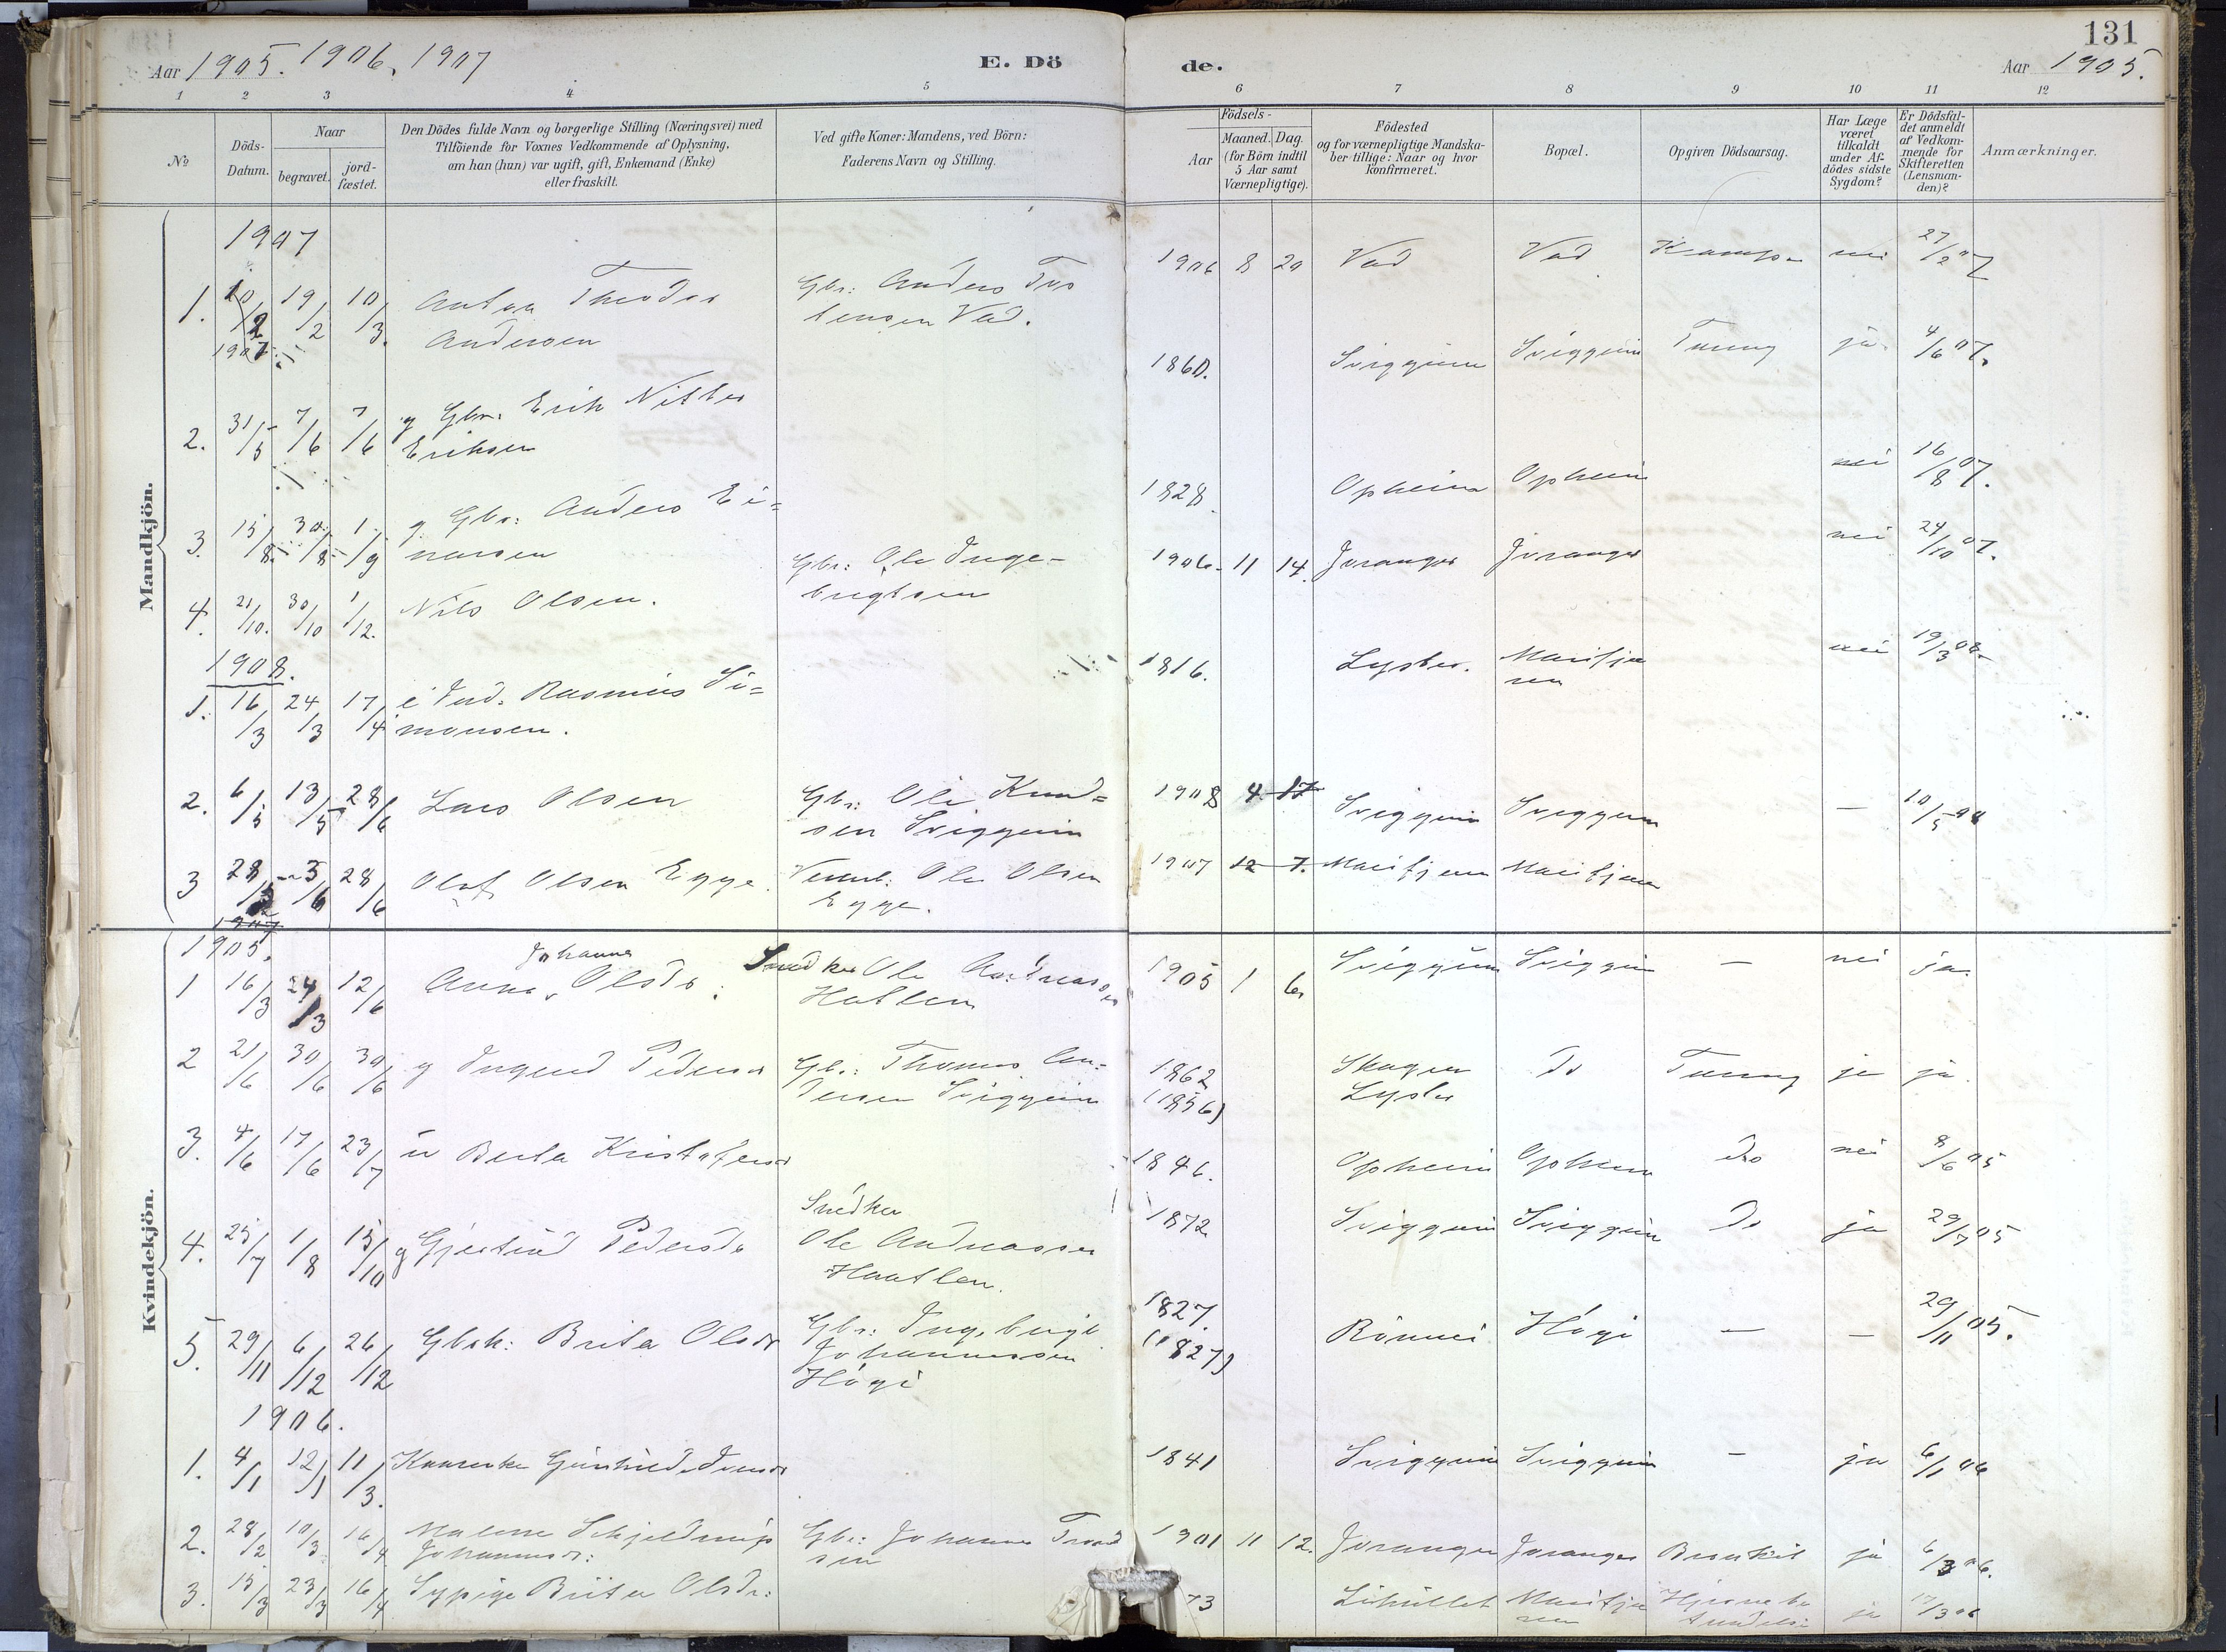 131
Aar 1905. 1906, 1907
E. Dö
de.
Aar 1905.
1 2 3 4 5 6 7 8 9 10 11 12
No
Döds-
Datum.
Naar
begravet.
jord-
fæstet.
Den Dödes fulde Navn og borgerlige Stilling (Næringsvei) med
Tilföiende for Voxnes Vedkommende af Oplysning,
om han (hun) var ugift, gift, Enkemand (Enke)
eller fraskilt.
Ved gifte Koner: Mandens, ved Börn:
Faderens Navn og Stilling.
Födsels-
Aar
Maaned. Dag.
(for Börn indtil
5 Aar samt
Værnepligtige).
Födested
og for værnepligtige Mandska-
ber tillige: Naar og hvor
konfirmeret.
Bopæl.
Opgiven Dödsaarsag.
Har Læge
været
tilkaldt
under Af-
dödes sidste
Sygdom?
Er Dödsfal-
det anmeldt
af Vedkom-
mende for
Skifteretten
(Lensman-
den)?
Anmærkninger.
Mandkjön.
1907
1. 10/2 1907 19/2 10/3. Anton Theodor Gbr: Anders Tor 1906 8 20 Vad Vad Krampe nei 27/2 07
Andersen bensen Vad.
2. 31/5 7/6 7/6 g Gbr: Erik Nitter 1860. Sviggum Sviggum Tæring ja 4/6 07.
Eriksen
3. 15/8 30/8 1/9 g Gbr: Anders Ei= 1828. Opheim Opheim nei 16/8 07.
narsen
4. 21/10. 30/10 1/12. Nils Olsen. Gbr: Ole Inge- 1906 11 14. Joranger Joranger nei 24/10 07.
brigtsen
1908.
1. 16/3 24/3 17/4 e Ind: Rasmus Si= 1816. Lyster. Marifjæ nei 19/3 08
monsen. ren
2. 6/5 13/5 28/6 Lars Olsen Gbr: Ole Knud= 1908 4 17 Sviggum Sviggum — 10/5 08
sen Sviggum
3 28/5 3/6 28/6 Olaf Olsen Egge. Ole Olsen 1907 12 7. Marifjæren Marifjæren
Egge.
Kvindekjön.
1907
1905.
1 16/3 24/3 12/6 Anna Johanna Olsdr. Snedker Ole Andreassen 1905 1 6 Sviggum Sviggum — nei ja.
Hatlen
2 21/6 30/6 30/6 g Ingerid Pedersdr Gbr: Thomas An= 1862 Skagen do Tæring ja ja.
dersen Sviggum (1856) Lyster
3. 4/6 17/6 23/7 u Berta Kristofersdr 1846. Opheim Opheim do nei 8/6 05
4. 25/7 1/8 15/10 g Gjertrud Pedersdr Snedker 1872 Sviggum Sviggum do ja 29/7 05
Ole Andreassen
Haatlen.
5. 29/11 6/12 26/12 Gbrk: Brita Olsdr Gbr: Ingebrigt 1827. Rönnei Högi — — 29/11 05.
Johannessen (1827)
Högi
1906.
1. 4/1 12/1 11/3. Kaarenke Gunhild Iversdr 1841 Sviggum Sviggum — ja 6/1 06
2. 28/2 10/3 16/4 Malene Schjelderup Gbr: Johannes Trond 1901 11 12. Joranger Joranger Bronkit ja 6/3 06.
Johannesdr: sen
3. 15/3 23/3 16/4 Sypige Brita Olsdr: 73 Marifjæ Hjernebe ja 17/3 06
ren tændelse